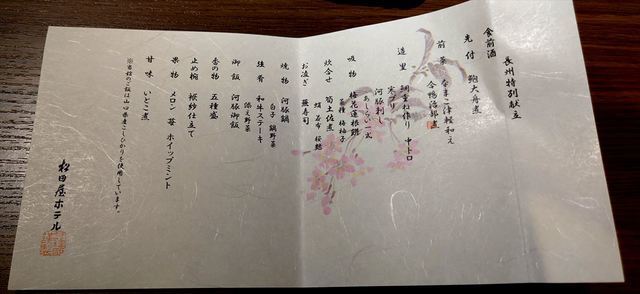 長州特別献立
食前酒
先付 鮑大舟煮
前菜 なまこ津軽和え
合鴨治部煮
造里 中トロ
河豚刺し
あしらい一式
吸物 梅花蓮根饅
菜種 梅柚子
炊合せ 筍土佐煮
蛸 若布 桜麩
お凌ぎ 蕪寿司
焼物 河豚鍋
白子 鍋野菜
強肴 和牛ステーキ
添え野菜
御飯 河豚御飯
香の物 五種盛
止め椀 袱紗仕立て
果物 メロン 苺 ホイップミント
甘味 いとこ煮
※当館のご飯は山口県産こしひかりを使用しています。
松田屋ホテル